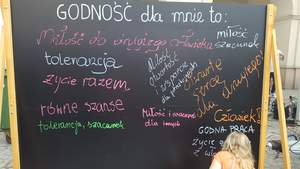 GODNOŚĆ dla mnie to:
Miłość do drugiego człowieka
miłość
szacunek
tolerancja
Miłość
otwartość
wsparcie
Otwarte
serce
dla drugiego
życie razem
równe szanse
Miłość i szacunek
dla innych
Człowiek!
tolerancja, szacunek
GODNA PRACA
życie
z